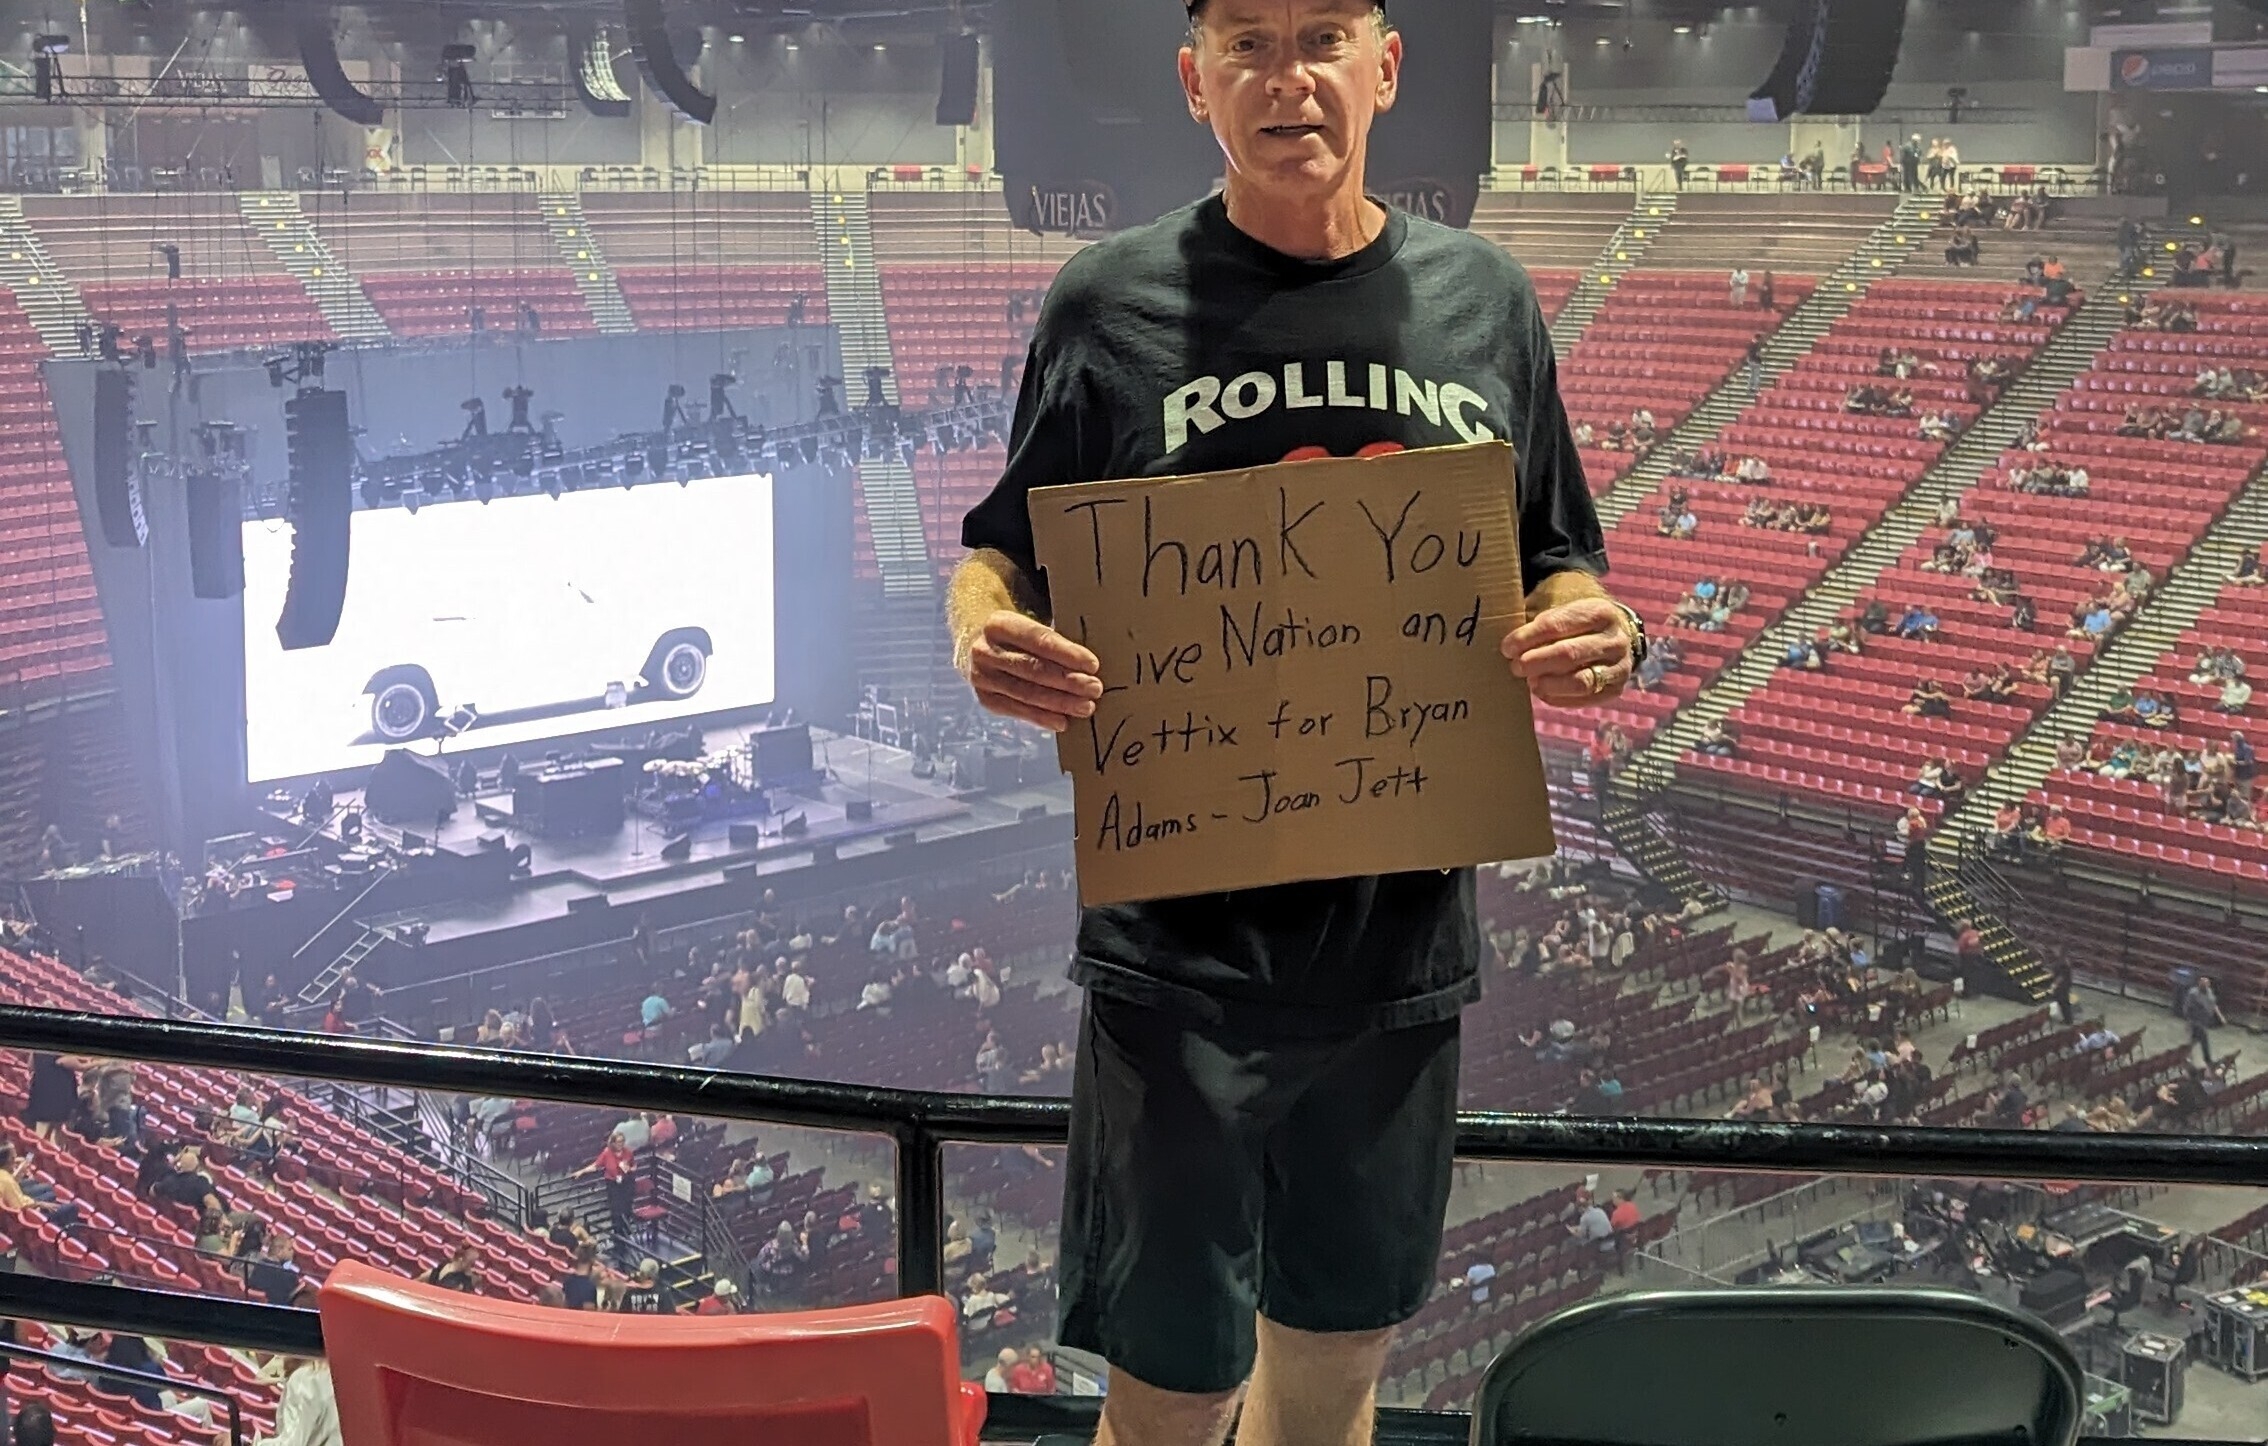 VIEJAS
pepsi
ROLLING
Thank You
Live Nation and
Vettix for Bryan
Adams - Joan Jett